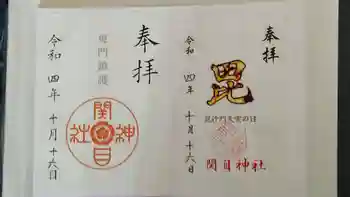 奉拝
毘
毘沙門天寅の日
関目神社
令和四年十月十六日
奉拝
鬼門鎮護
関目神社
令和四年十月十六日